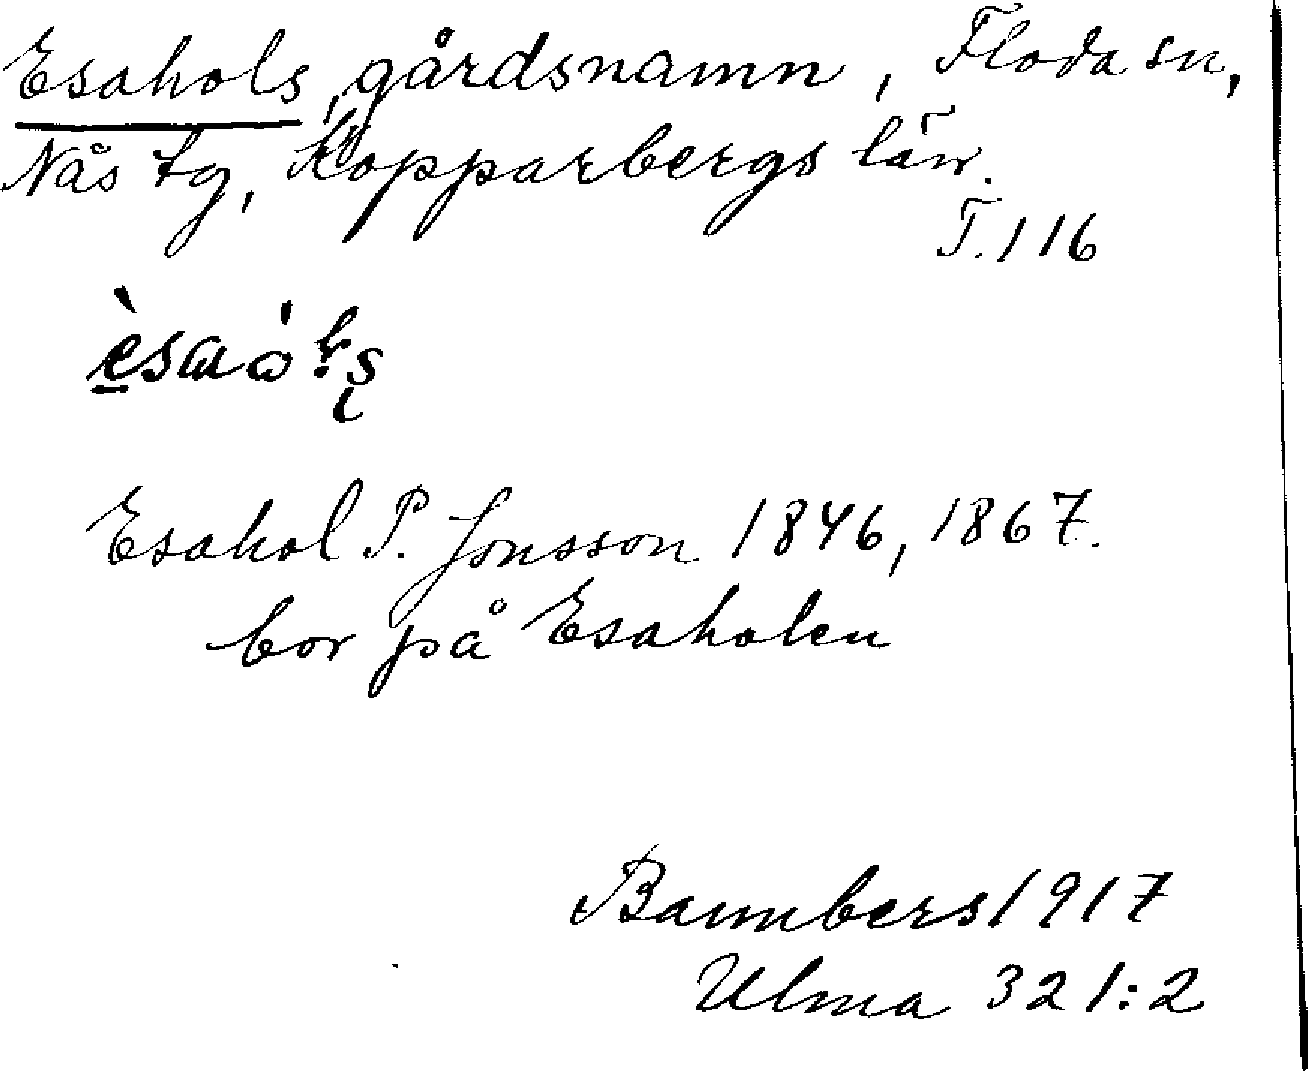 Esahols, gårdsnamn, Floda sn,
Nås tg, Kopparbergs län.
T. 116
Esahol P. Jonsson 1846, 1867.
bor på Esaholen
Bannbers 1917
Ulma 321:2